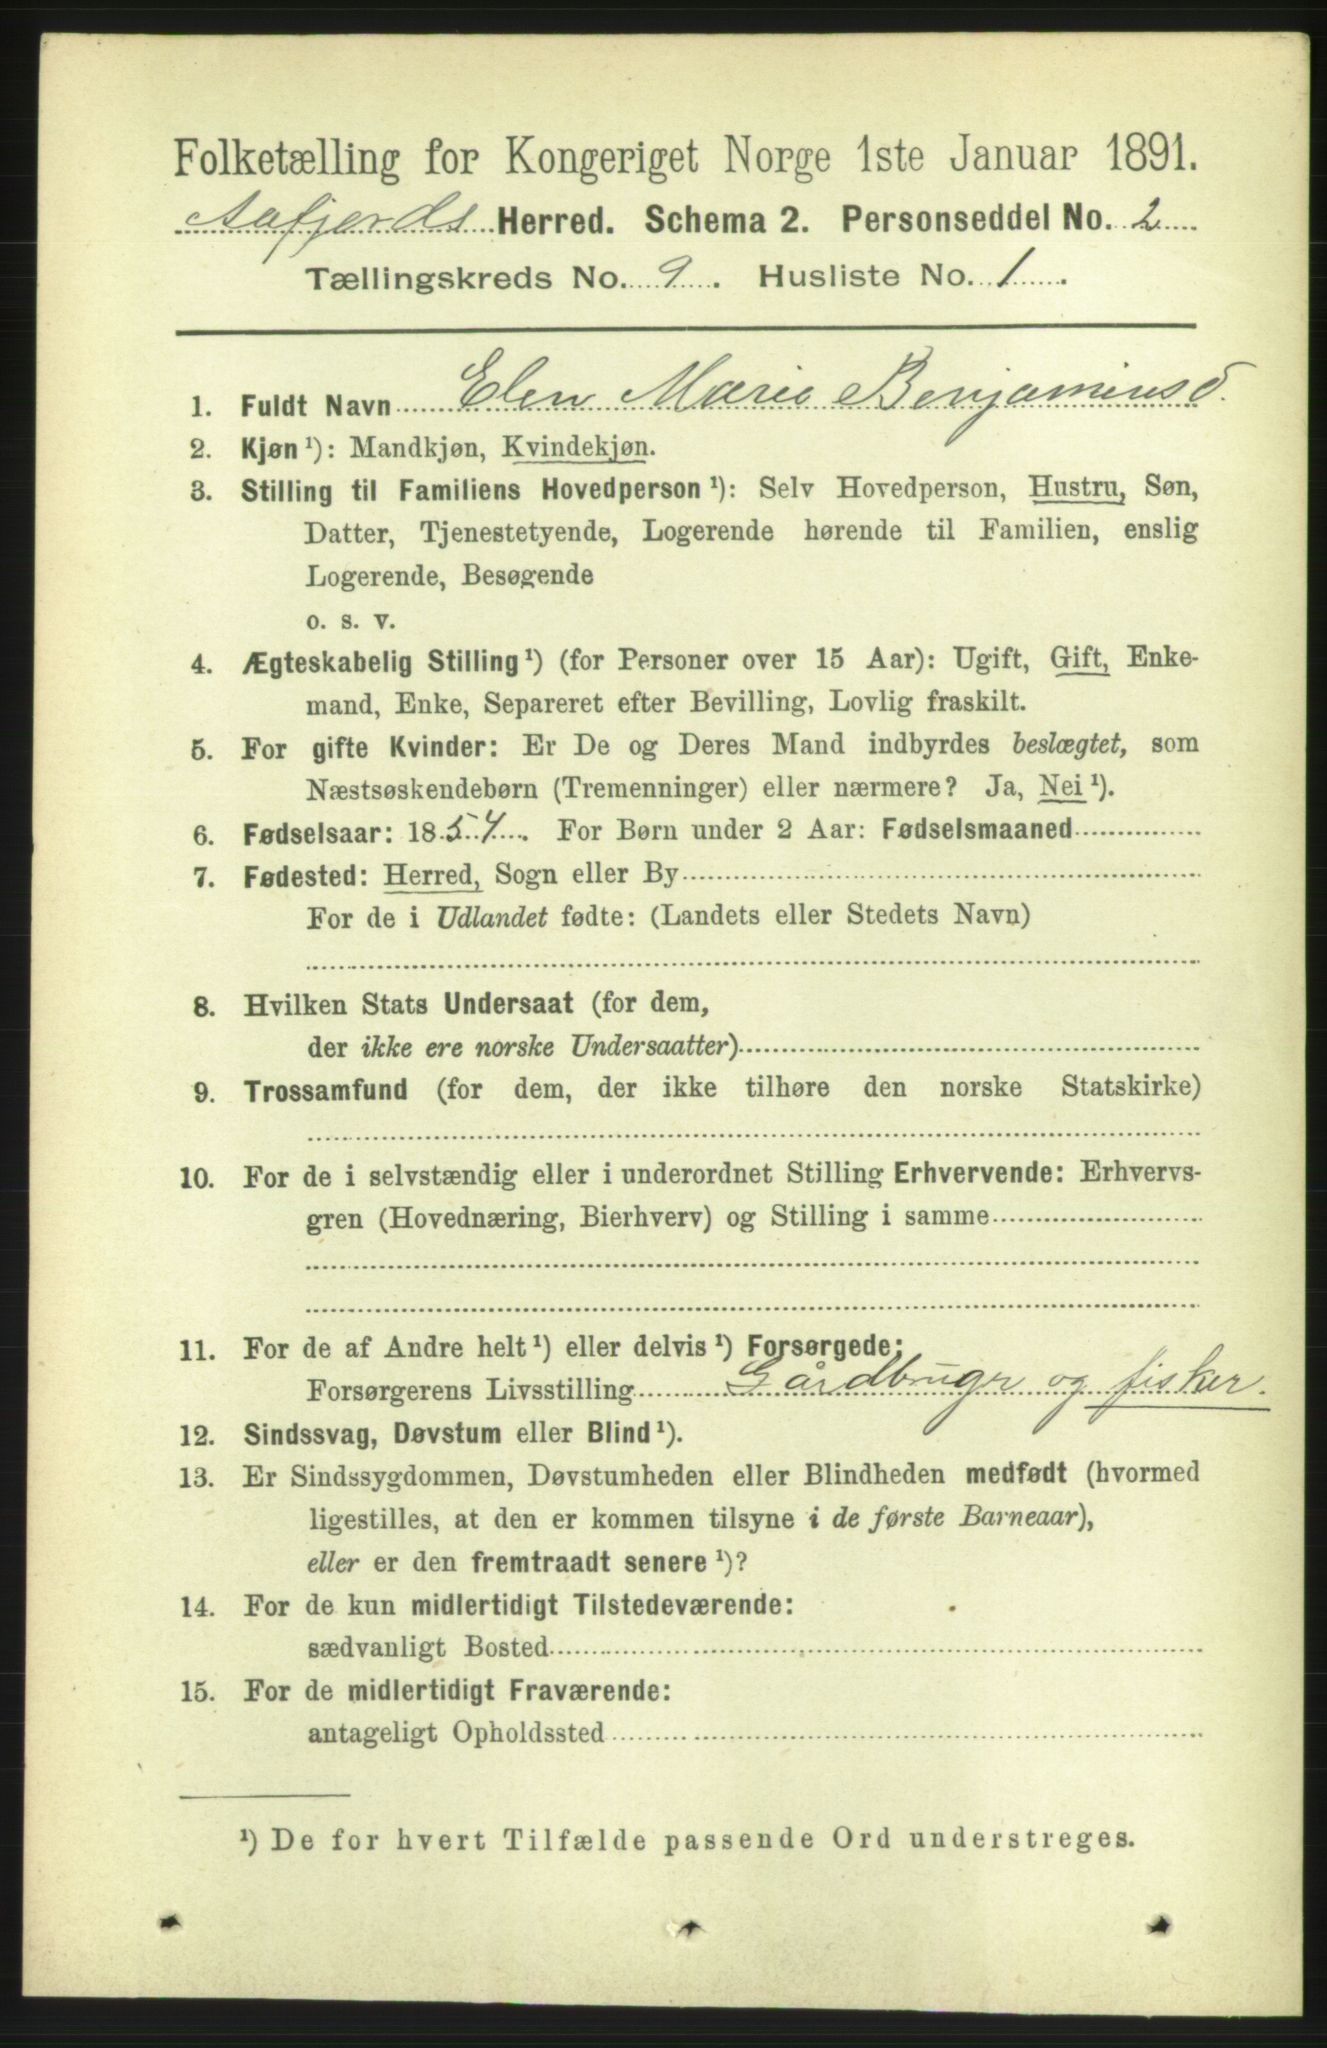 Folketælling for Kongeriget Norge 1ste Januar 1891.
Aafjords Herred. Schema 2. Personseddel No. 2
Tællingskreds No. 9. Husliste No. 1.
1. Fuldt Navn Elen Marie Benjaminsd.
2. Kjøn ¹): Mandkjøn, Kvindekjøn.
3. Stilling til Familiens Hovedperson ¹): Selv Hovedperson, Hustru, Søn,
Datter, Tjenestetyende, Logerende hørende til Familien, enslig
Logerende, Besøgende
o. s. v.
4. Ægteskabelig Stilling ¹) (for Personer over 15 Aar): Ugift, Gift, Enke-
mand, Enke, Separeret efter Bevilling, Lovlig fraskilt.
5. For gifte Kvinder: Er De og Deres Mand indbyrdes beslægtet, som
Næstsøskendebørn (Tremenninger) eller nærmere? Ja, Nei ¹).
6. Fødselsaar: 1854. For Børn under 2 Aar: Fødselsmaaned
7. Fødested: Herred, Sogn eller By
For de i Udlandet fødte: (Landets eller Stedets Navn)
8. Hvilken Stats Undersaat (for dem,
der ikke ere norske Undersaatter)
9. Trossamfund (for dem, der ikke tilhøre den norske Statskirke)
10. For de i selvstændig eller i underordnet Stilling Erhvervende: Erhvervs-
gren (Hovednæring, Bierhverv) og Stilling i samme
11. For de af Andre helt ¹) eller delvis ¹) Forsørgede:
Forsørgerens Livsstilling Gårdbruger og fisker.
12. Sindssvag, Døvstum eller Blind ¹).
13. Er Sindssygdommen, Døvstumheden eller Blindheden medfødt (hvormed
ligestilles, at den er kommen tilsyne i de første Barneaar),
eller er den fremtraadt senere ¹)?
14. For de kun midlertidigt Tilstedeværende:
sædvanligt Bosted
15. For de midlertidigt Fraværende:
antageligt Opholdssted
¹) De for hvert Tilfælde passende Ord understreges.